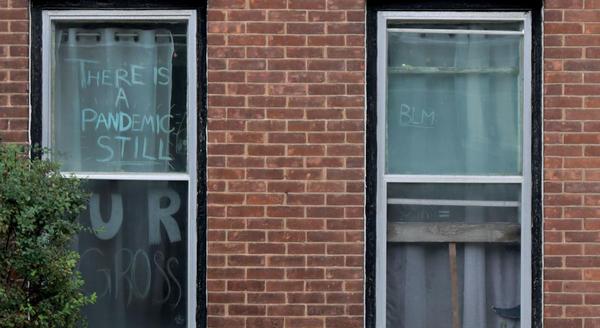 THERE IS
A
PANDEMIC
STILL
UR
GROSS
BLM